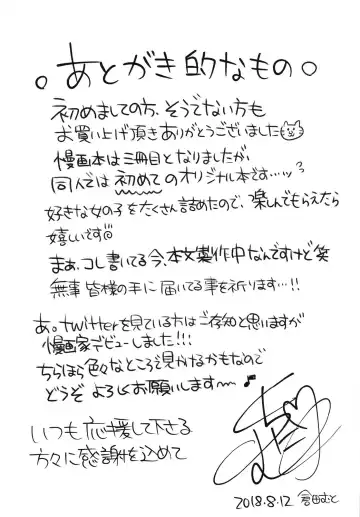 。あとがき的なもの。
初めましての方、そうでない方も
お買い上げ頂きありがとうございました
漫画本は三冊目となりましたが、
同人では初めてのオリジナル本です…ッ
好きな女の子をたくさん詰めたので、楽しんでもらえたら
嬉しいです
まぁ、コレ書いてる今、本文製作中なんですけど笑
無事皆様の手に届いてる事を祈ります…!!
あ。twitterを見ている方はご存知と思いますが
漫画家デビューしました!!!
ちらほら色々なところで見かけるかもなので
どうぞよろしくお願いします〜♪
いつも応援して下さる
方々に感謝を込めて
2018.8.12